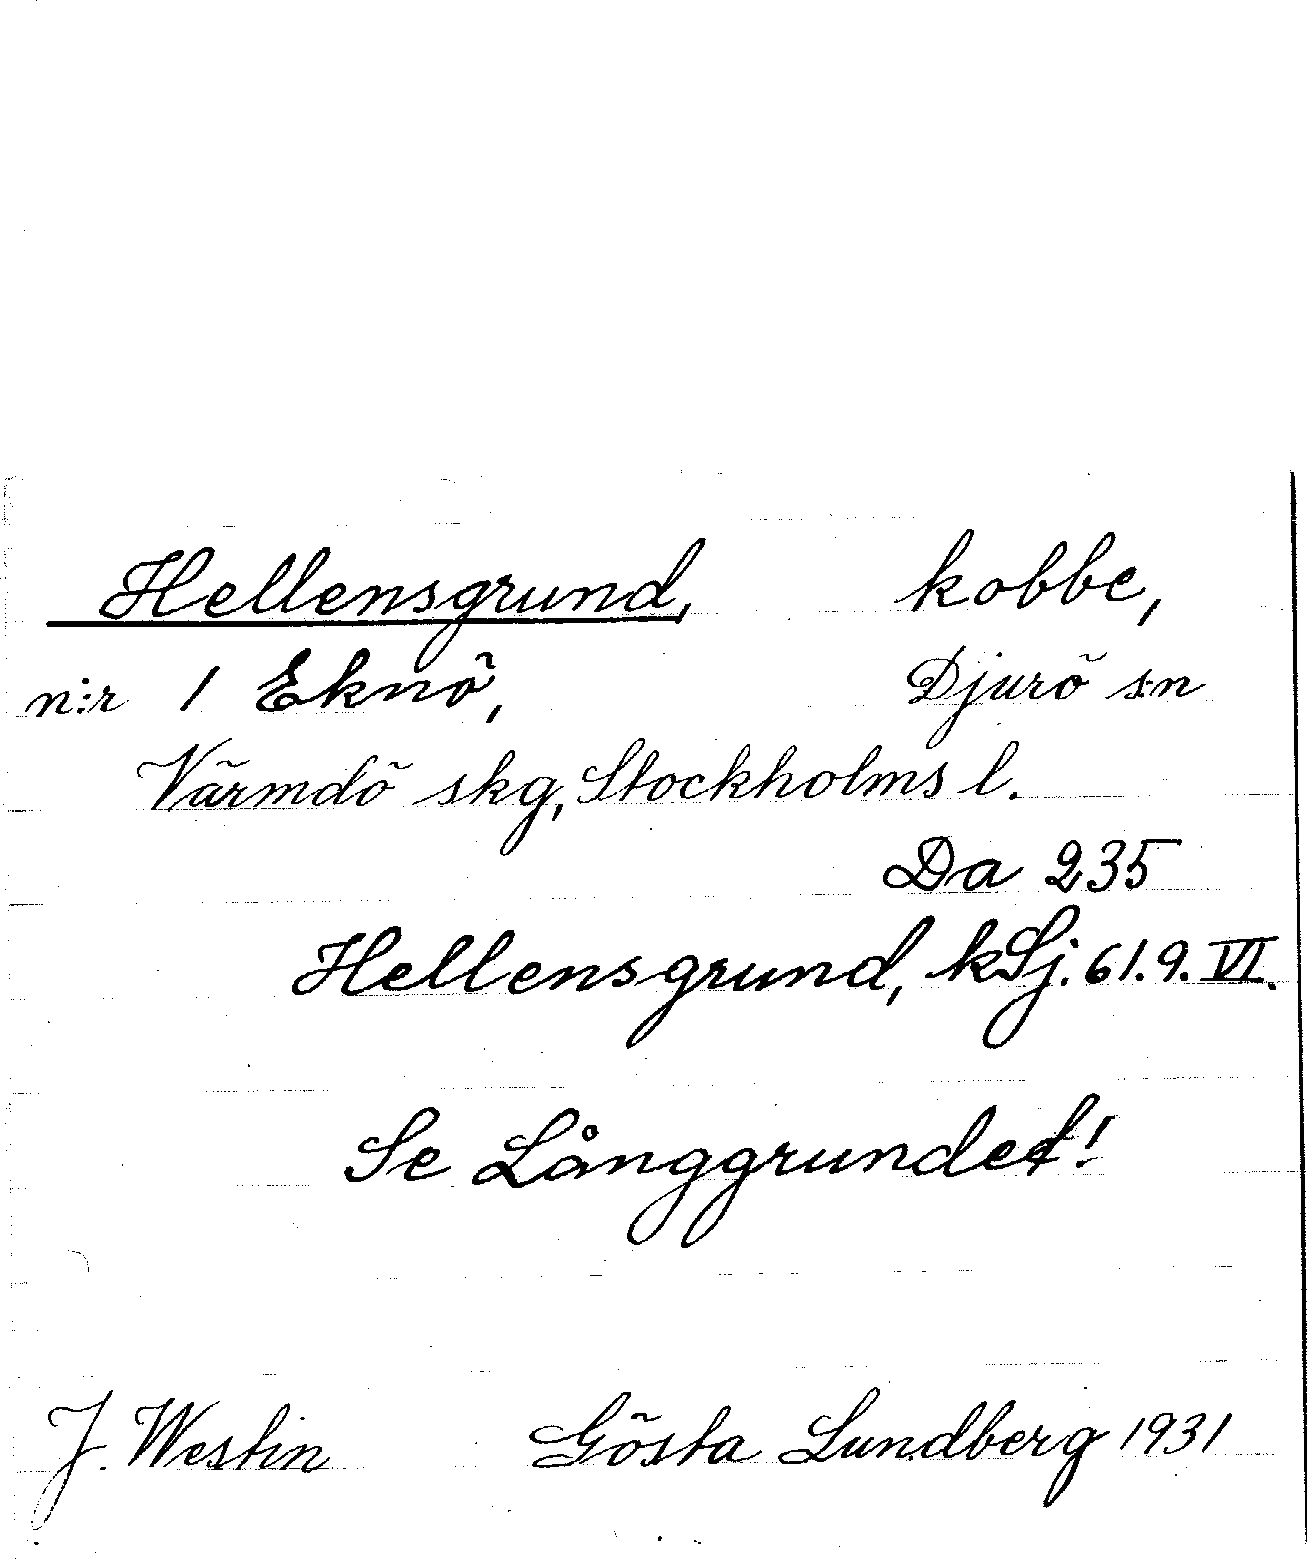 Hellensgrund, kobbe,
n:r 1 Eknö, Djurö s:n
Värmdö skg, Stockholms l.
Da 235
Hellensgrund, kSj. 61.9. VI.
Se Långgrundet!
J. Westin Gösta Lundberg 1931